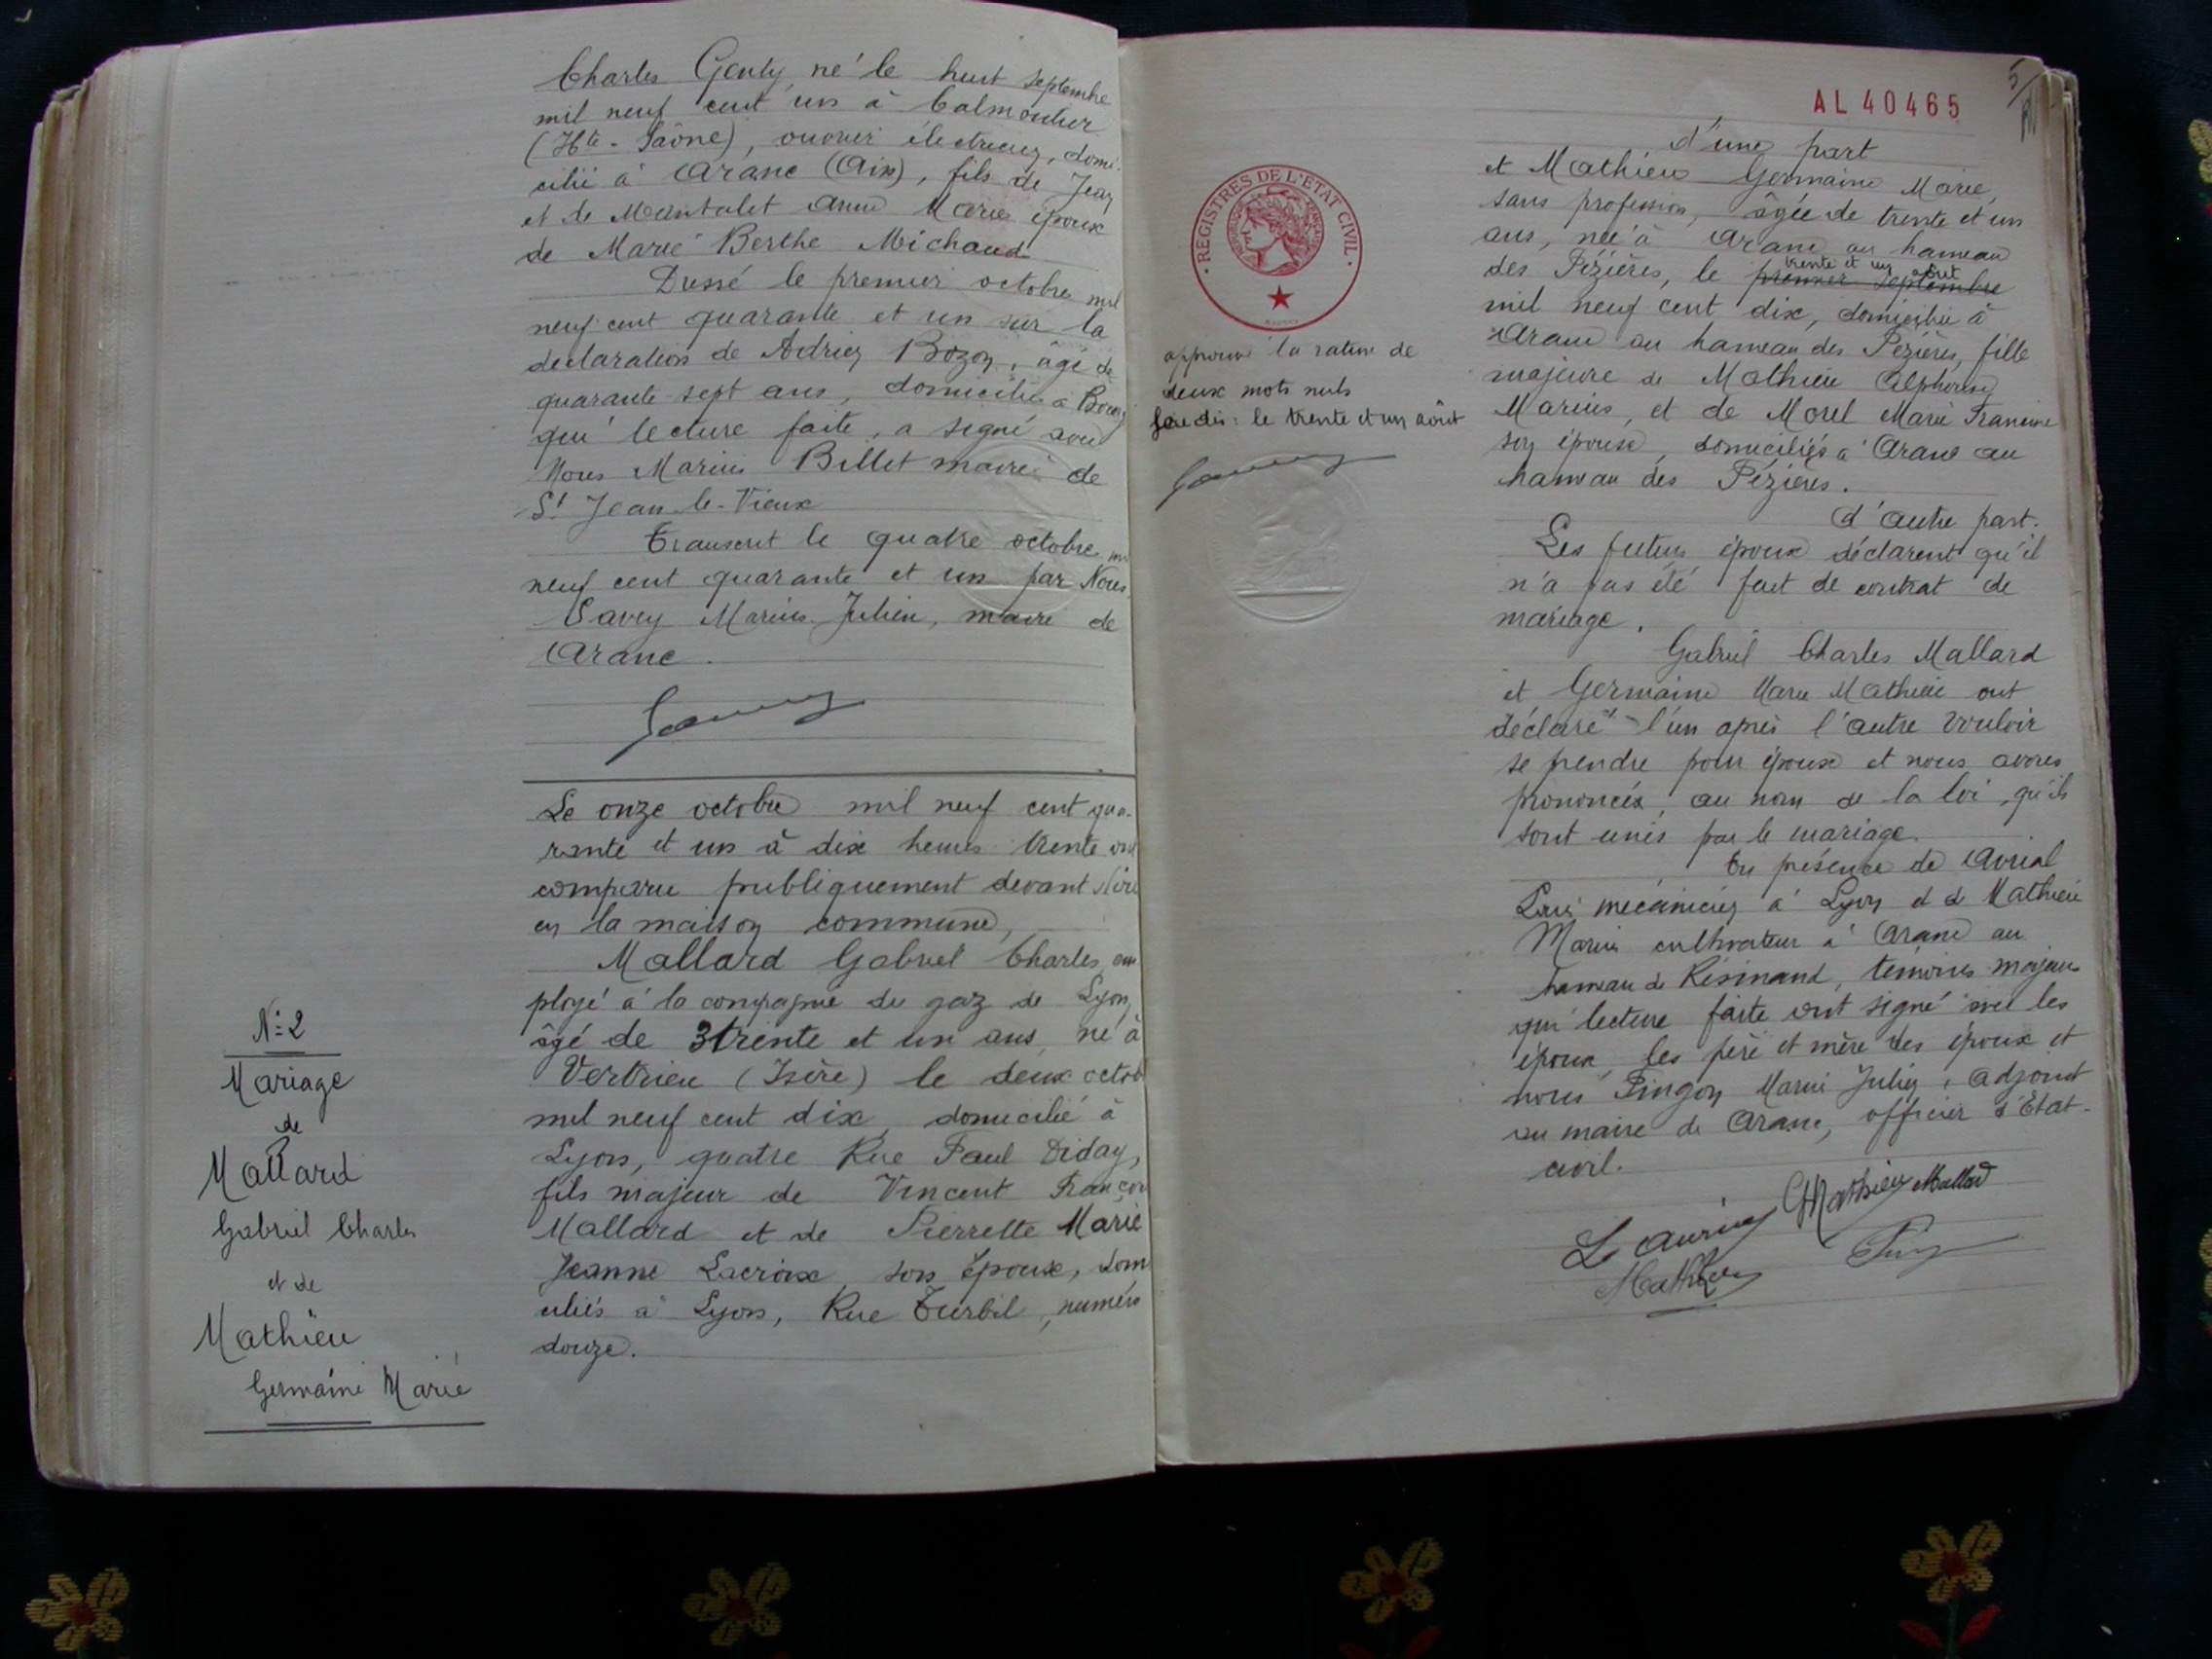 Charles Gently né le huit septembre
mil neuf cent un à Calmoutier
(Hte-Saône), ouvrier électricien, domi-
cilié à Aranc (Ain), fils de Jean
et de Mantalet Anne Marie époux
de Marie Berthe Michaud
Dressé le premier octobre mil
neuf cent quarante et un sur la
déclaration de Adrien Bozon, âgé de
quarante sept ans, domicilié à Bourg
qui lecture faite, a signé avec
Nous Marius Billet maire de
St Jean-le-Vieux
Transcrit le quatre octobre mil
neuf cent quarante et un par Nous
Savey Marius Julien, maire de
Aranc.
Le onze octobre mil neuf cent qua-
rante et un à dix heures trente ont
comparu publiquement devant Nous
en la maison commune,
Mallard Gabriel Charles, em
ployé à la compagnie du gaz de Lyon,
âgé de trente et un ans, né à
Vertrieu (Isère) le deux octob
mil neuf cent dix, domicilié à
Lyon, quatre Rue Paul Diday,
fils majeur de Vincent François
Mallard et de Pierrette Marie
Jeanne Lacroix, son épouse, dom
iciliés à Lyon, Rue Turbil, numéro
douze.
N° 2
Mariage
de
Mallard
Gabriel Charles
et de
Mathieu
Germaine Marie
AL 40465
5
REGISTRES DE L'ETAT CIVIL
approuvé la rature de
deux mots nuls
le trente et un août
d'une part
et Mathieu Germaine Marie,
sans profession, âgée de trente et un
ans, née à Aranc au hameau
trente et un août
des Pézières, le premier septembre
mil neuf cent dix, domiciliée à
Aranc au hameau des Pézières, fille
majeure de Mathieu Alphonse
Marius, et de Morel Marie Francine
son épouse, domiciliés à Aranc au
hameau des Pézières.
d'autre part.
Les futurs époux déclarent qu'il
n'a pas été fait de contrat de
mariage.
Gabriel Charles Mallard
et Germaine Marie Mathieu ont
déclaré l'un après l'autre vouloir
se prendre pour époux et nous avons
prononcés, au nom de la loi, qu'ils
sont unis par le mariage.
En présence de Avrial
Louis mécanicien à Lyon et de Mathieu
Marius cultivateur à Aranc au
hameau de Résinand, témoins majeurs
qui lecture faite ont signé avec les
époux, les père et mère des époux et
nous Pingon Marius Julien, adjoint
au maire de Aranc, officier d'Etat-
civil.
G Mathieu Mallard
Mathieu